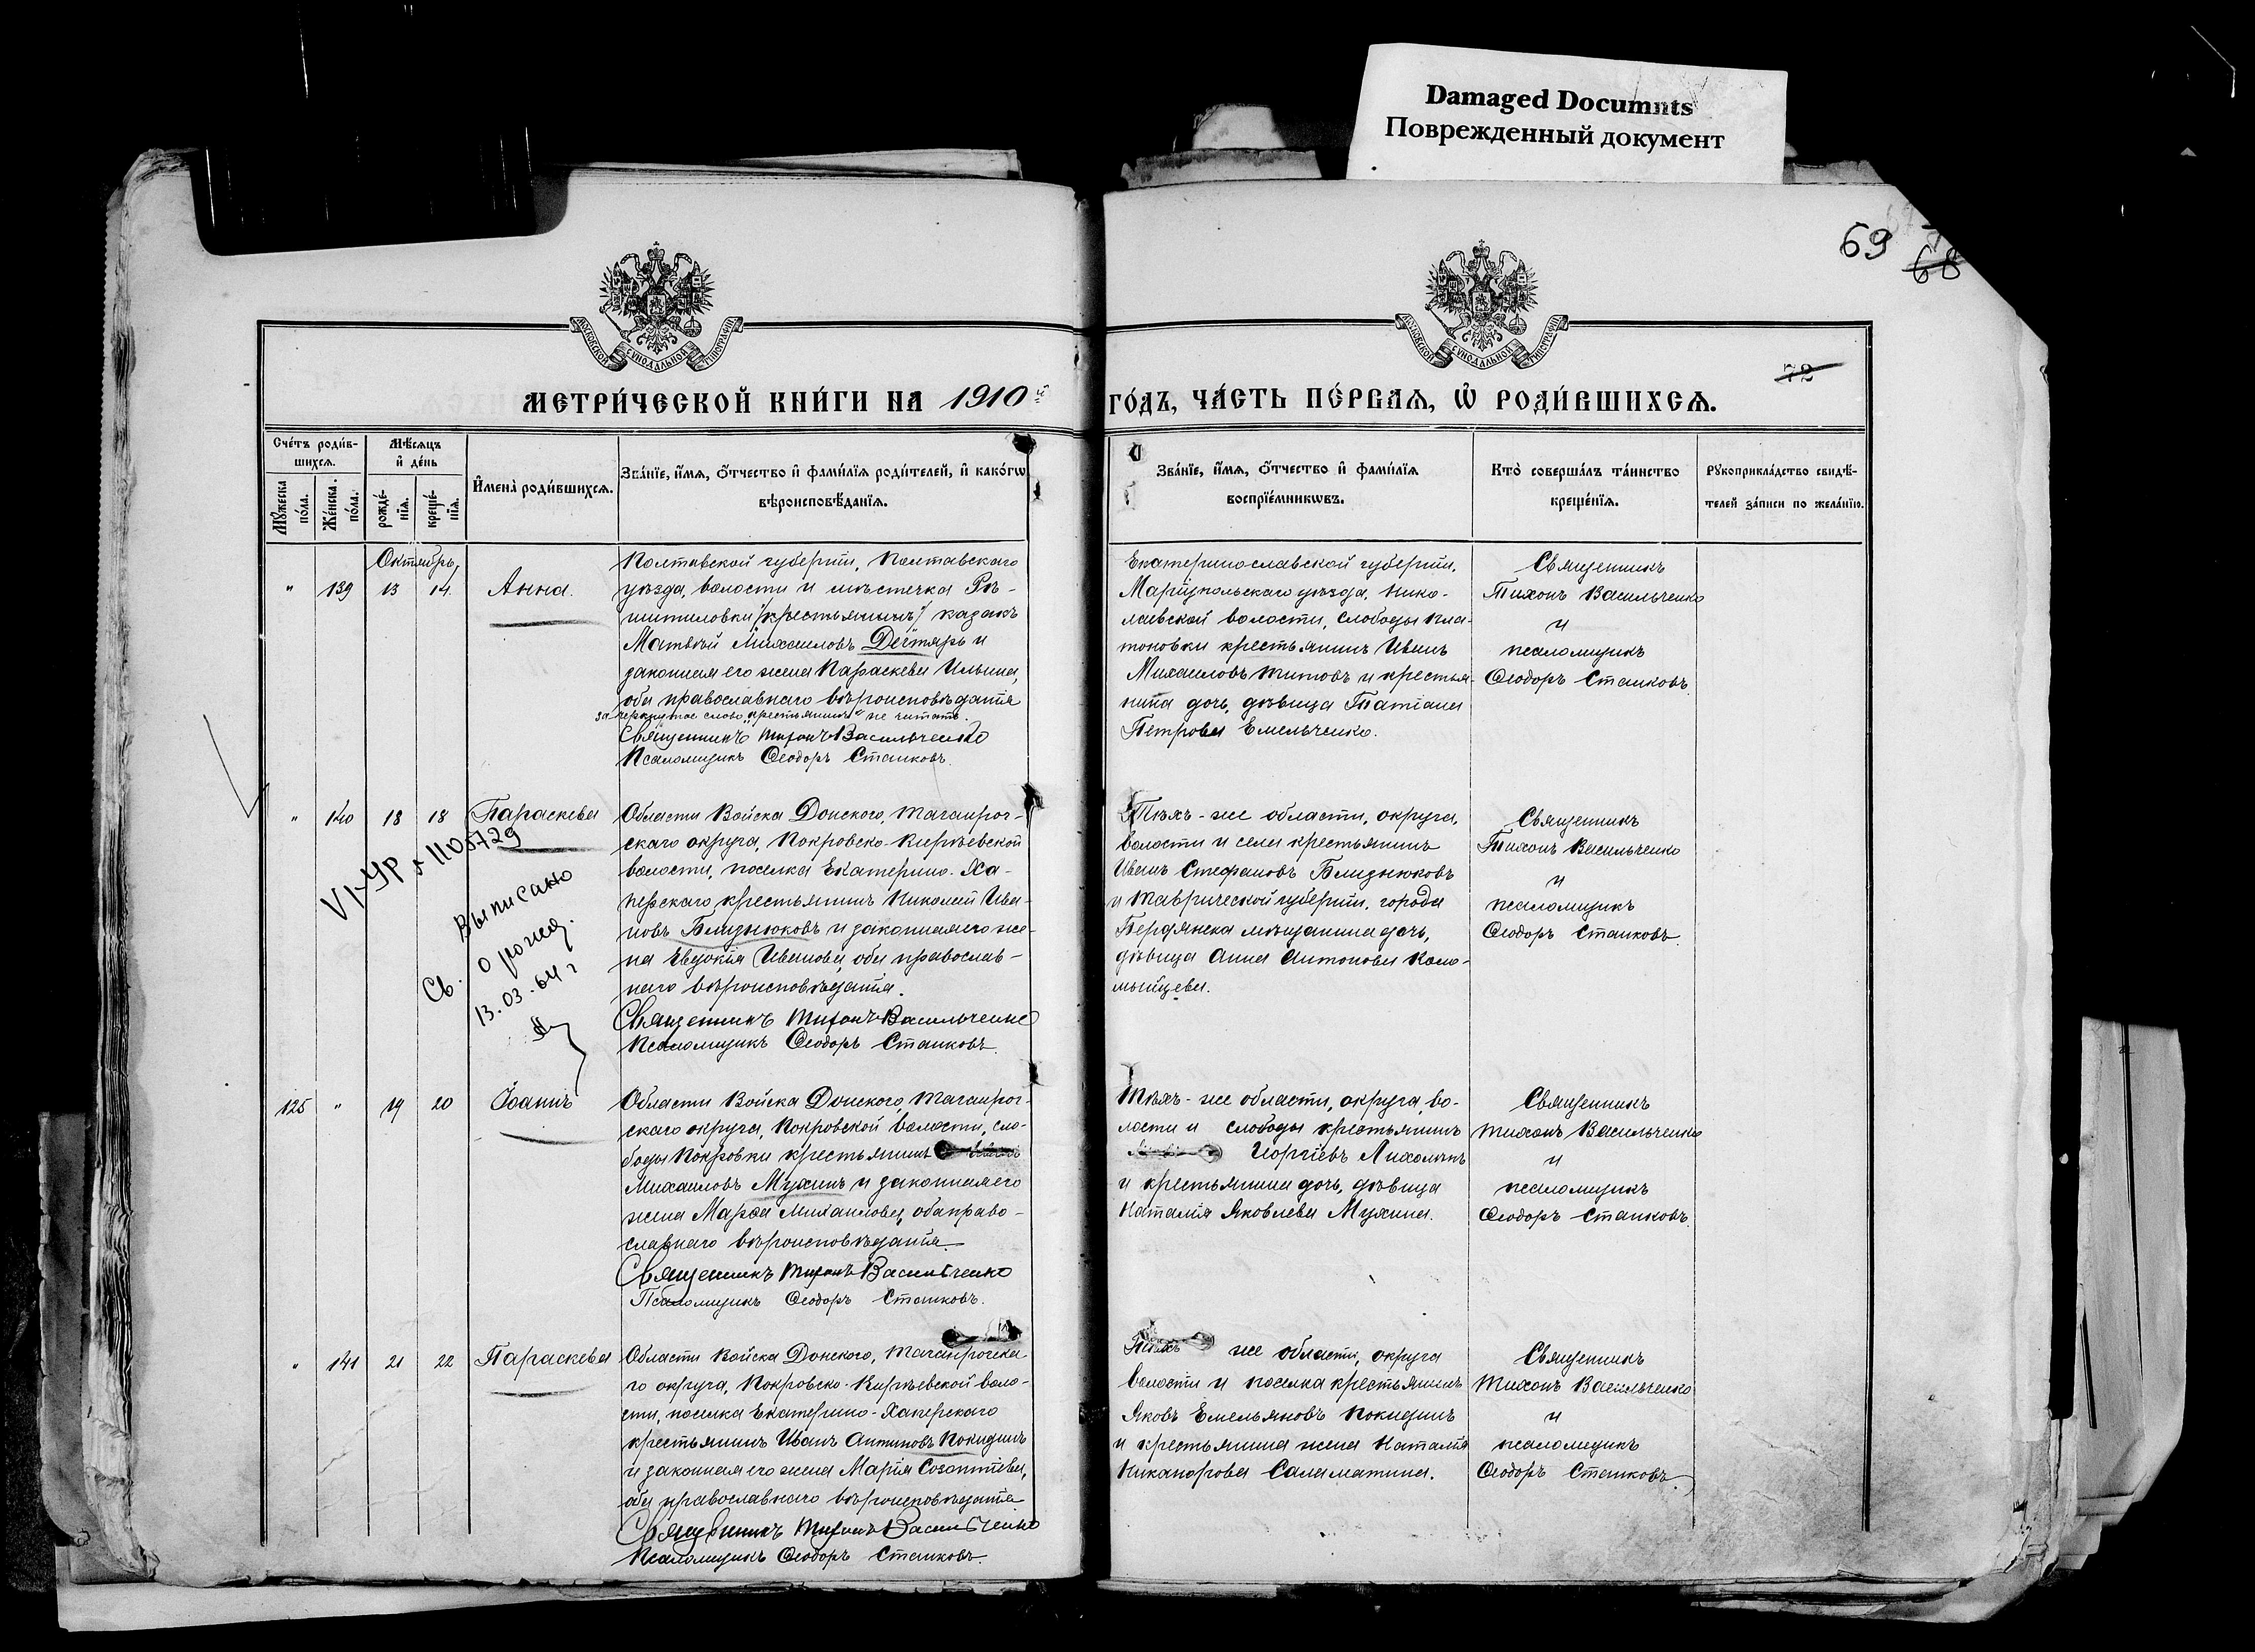 Damaged Documnts
Поврежденный документ
69
68
72
МОСКОВСКОЙ СУНОДАЛЬНОЙ ТИПОГРАФІИ
МОСКОВСКОЙ СУНОДАЛЬНОЙ ТИПОГРАФІИ
МЕТРИ́ЧЕСКОЙ КНИ́ГИ НА 1910й
ГО́ДЪ, ЧА́СТЬ ПЕ́РВАѦ, Ѡ РОДИ́ВШИХСѦ.
Сче́тъ роди́в-
шихсѧ.
Мꙋ́жеска по́ла.
Же́нска. по́ла.
Мѣ́сѧцъ
и де́нь
рожде́-
нїѧ.
креще́-
нїѧ.
Имена̀ роди́вшихсѧ.
Зва́нїе, и́мѧ, ѻ҆́тчество и҆ фами́лїѧ роди́телей, и҆ како́гѡ
вѣроисповѣ́данїѧ.
Зва́нїе, и́мѧ, ѻ҆́тчество и҆ фами́лїѧ
воспрїе́мникѡвъ.
Кто̀ соверша́лъ та́инство
креще́нїѧ.
Рꙋкоприкла́дство свидѣ́-
телей за́писи по жела́нїю.
Октябрь
" 139 13 14 Анна.
Полтавской губерніи, Полтавскаго
уѣзда, волости и мѣстечка Рѣ-
шетиловки /крестьянинъ/ казакъ
Матвѣй Михаиловъ Дегтярь и
законная его жена Параскева Ильина,
оба православнаго вѣроисповѣданія
зачеркнутое слово „крестьянинъ" не читать.
Священникъ Тихонъ Васильченко
Псаломщикъ Ѳеодоръ Станковъ.
Екатеринославской губерніи,
Маріупольскаго уѣзда, Нико-
лаевской волости, слободы Пла-
тоновки крестьянинъ Иванъ
Михаиловъ Титовъ и крестья-
нина дочь, дѣвица Татіана
Петрова Емельченко.
Священникъ
Тихонъ Васильченко
и
псаломщикъ
Ѳеодоръ Станковъ.
" 140 18 18 Параскева
Области Войска Донского, Таганрог-
скаго округа, Покровско-Кирѣевской
волости, поселка Екатерино-Ха-
перскаго крестьянинъ Николай Ива-
новъ Близнюковъ и законная его же-
на Евдокія Иванова, оба православ-
наго вѣроисповѣданія.
Священникъ Тихонъ Васильченко
Псаломщикъ Ѳеодоръ Станковъ.
VI-УР № 1105729
Выписано
Св. о рожд.
13.03.64 г
Тѣхъ-же области, округа,
волости и села крестьянинъ
Иванъ Стефановъ Близнюковъ
и Таврической губерніи, города
Бердянска мѣщанина дочь,
дѣвица Анна Антонова Коло-
мыйцева.
Священникъ
Тихонъ Васильченко
и
псаломщикъ
Ѳеодоръ Станковъ.
125 " 19 20 Іоаннъ
Области Войска Донского, Таганрог-
скаго округа, Покровской волости, сло-
боды Покровки крестьянинъ
Михаиловъ Мухинъ и законная его
жена Марѳа Михаилова, оба право-
славнаго вѣроисповѣданія.
Священникъ Тихонъ Васильченко
Псаломщикъ Ѳеодоръ Станковъ.
Тѣхъ-же области, округа, во-
лости и слободы крестьянинъ
Георгіевъ Лихоманъ
и крестьянина дочь, дѣвица
Наталія Яковлева Мухина.
Священникъ
Тихонъ Васильченко
и
псаломщикъ
Ѳеодоръ Станковъ.
" 141 21 22 Параскева
Области Войска Донского, Таганрогска-
го округа, Покровско-Кирѣевской воло-
сти, поселка Екатерино-Хаперскаго
крестьянинъ Иванъ Антиповъ Покидинъ
и законная его жена Марія Созонтіева,
оба православнаго вѣроисповѣданія
Священникъ Тихонъ Васильченко
Псаломщикъ Ѳеодоръ Станковъ.
Тѣхъ же области, округа
волости и поселка крестьянинъ
Яковъ Емельяновъ Покидинъ
и крестьянина жена Наталія
Никанорова Саламатина.
Священникъ
Тихонъ Васильченко
и
псаломщикъ
Ѳеодоръ Станковъ.